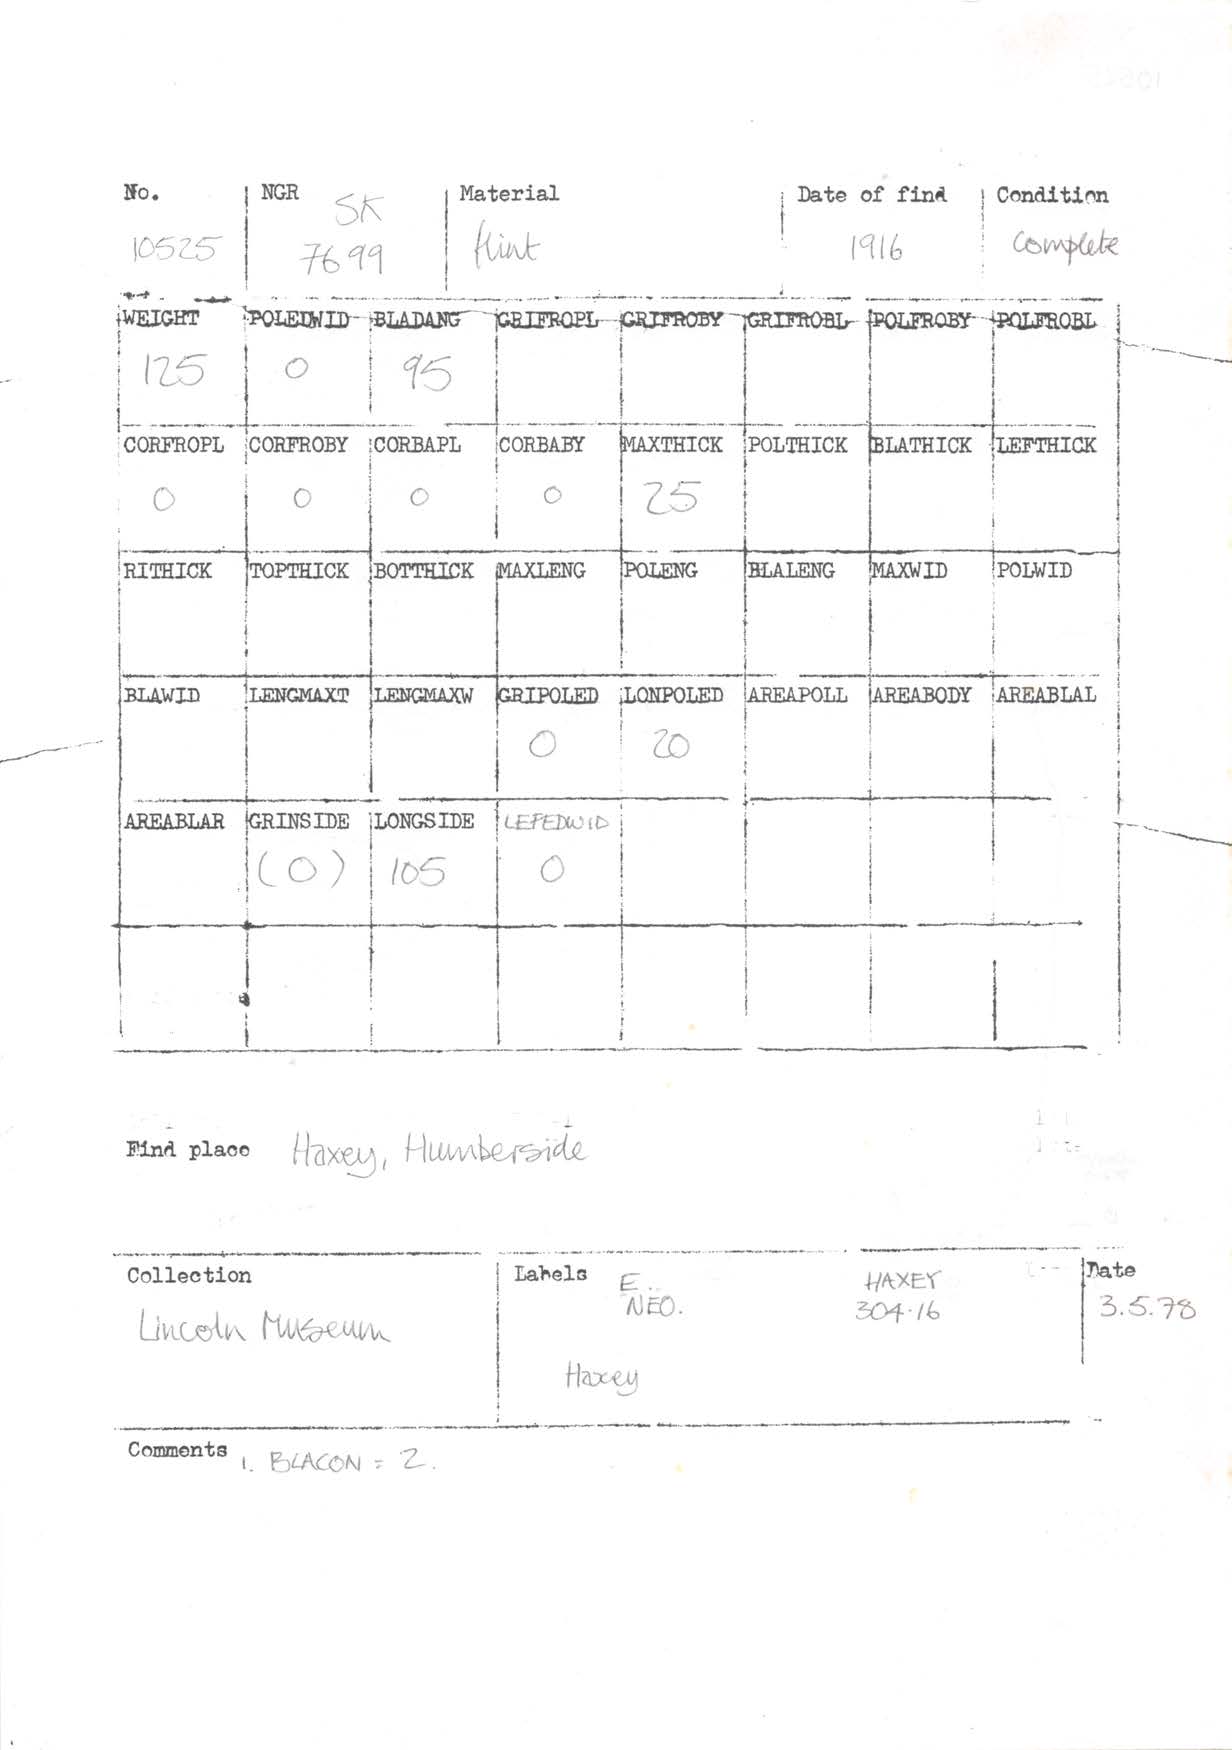 No. NGR Material Date of find Condition
SK
10525 7699 flint 1916 complete
WEIGHT POLEDWID BLADANG GRIFROPL GRIFROBY GRIFROBL POLFROBY POLFROBL
125 0 95
CORFROPL CORFROBY CORBAPL CORBABY MAXTHICK POLTHICK BLATHICK LEFTHICK
0 0 0 0 25
RITHICK TOPTHICK BOTTHICK MAXLENG POLENG BLALENG MAXWID POLWID
BLAWID LENGMAXT LENGMAXW GRIPOLED LONPOLED AREAPOLL AREABODY AREABLAL
0 20
AREABLAR GRINSIDE LONGSIDE LEFEDWID
(0) 105 0
Find place Haxey, Humberside
Collection Labels E. HAXEY Date
Lincoln Museum NEO. 304.16 3.5.78
Haxey
Comments 1. BLACON = 2.